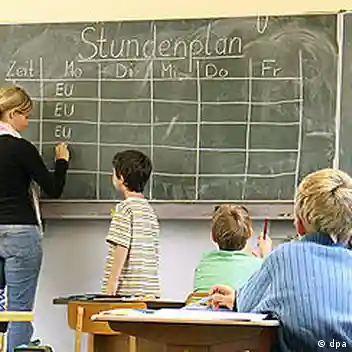 Stundenplan
Zeit Mo Di Mi Do Fr
EU
EU
EU
© dpa